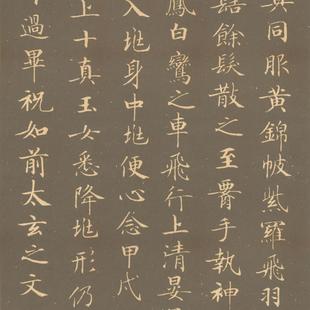 真同服黄錦帔紫羅飛羽
結餘髮散之至署手執神
鳳白鸞之車飛行上清晏
入地身中地便心念甲戌
上十真玉女悉降地形仍
過畢祝如前太玄之文